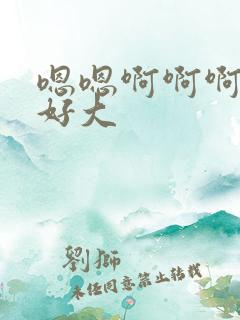 嗯嗯啊啊啊
好大
劉獅
未经同意禁止转载